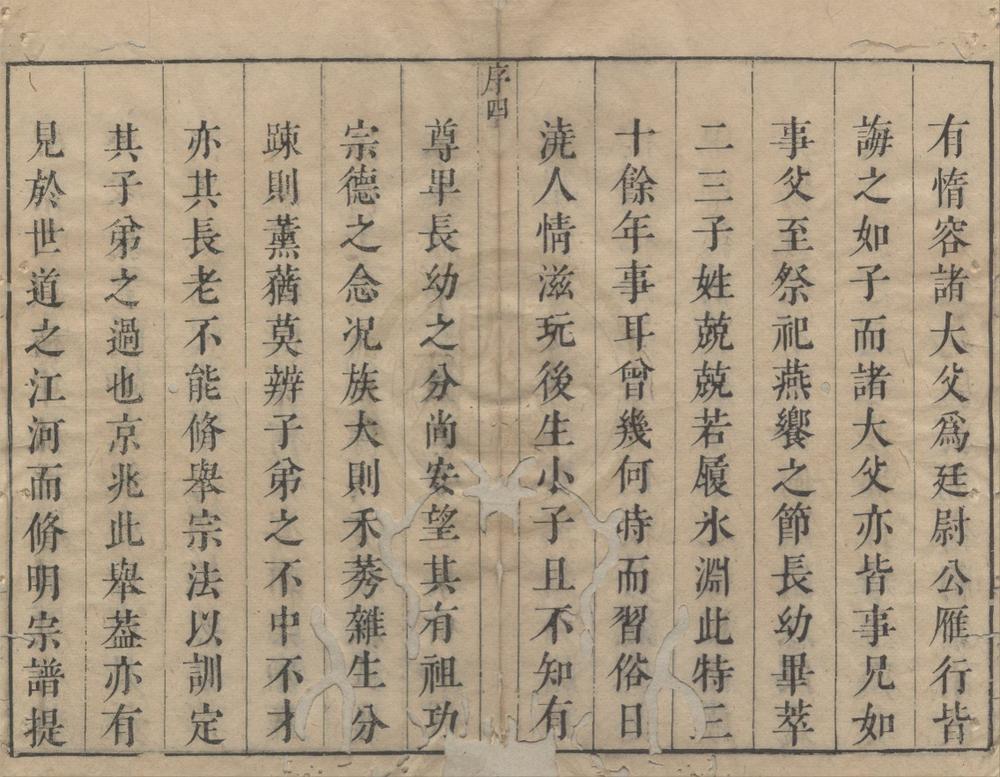 有惰容諸大父爲廷尉公雁行皆
誨之如子而諸大父亦皆事兄如
事父至祭祀燕饗之節長幼畢萃
二三子姓兢兢若履氷淵此特三
十餘年事耳曾幾何時而習俗日
澆人情滋玩後生小子且不知有
序四
尊卑長幼之分尚安望其有祖功
宗德之念况族大則禾莠雜生分
踈則薰蕕莫辨子弟之不中不才
亦其長老不能脩舉宗法以訓定
其子弟之過也京兆此舉葢亦有
見於世道之江河而脩明宗譜提